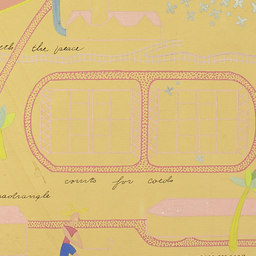 the palace
courts for coeds
quadrangle